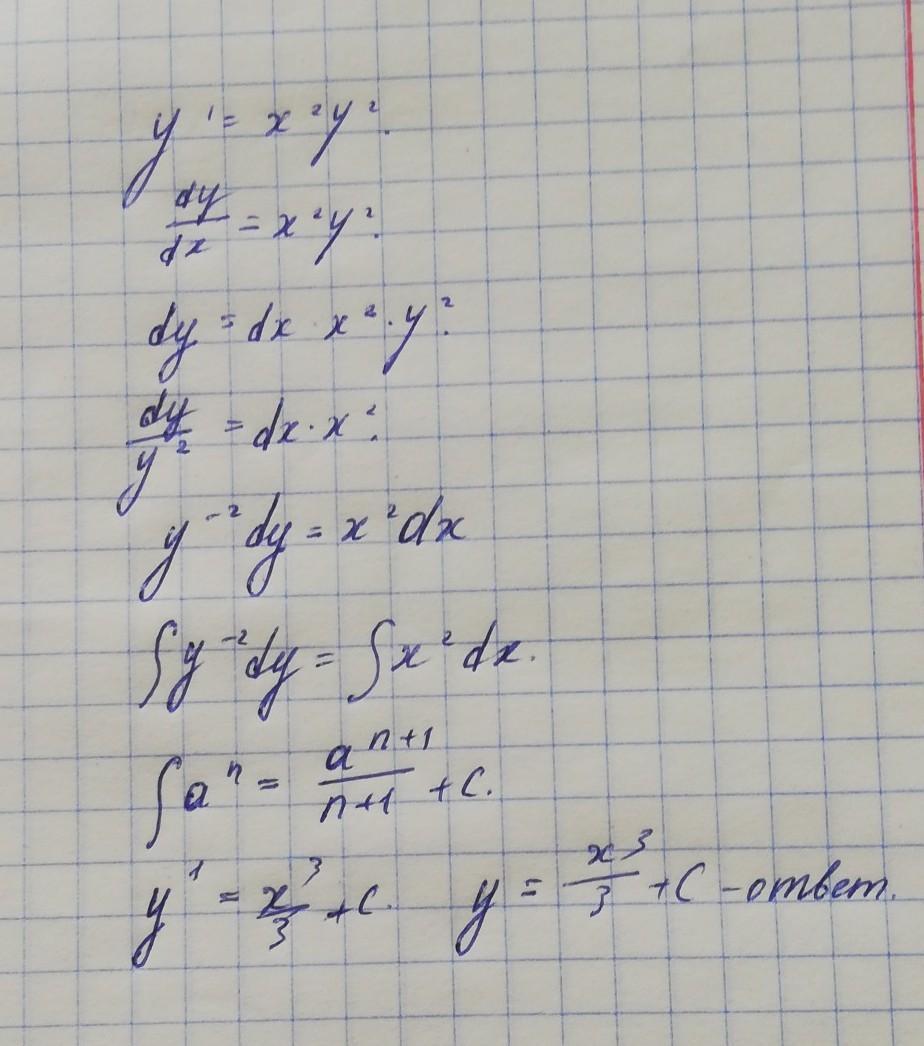 y' = x²y².
dy/dx = x²y².
dy = dx · x² · y².
dy/y² = dx · x².
y⁻² dy = x² dx
∫ y⁻² dy = ∫ x² dx.
∫ aⁿ = aⁿ⁺¹/n+1 + C.
y¹ = x³/3 + C. y = x³/3 + C – ответ.